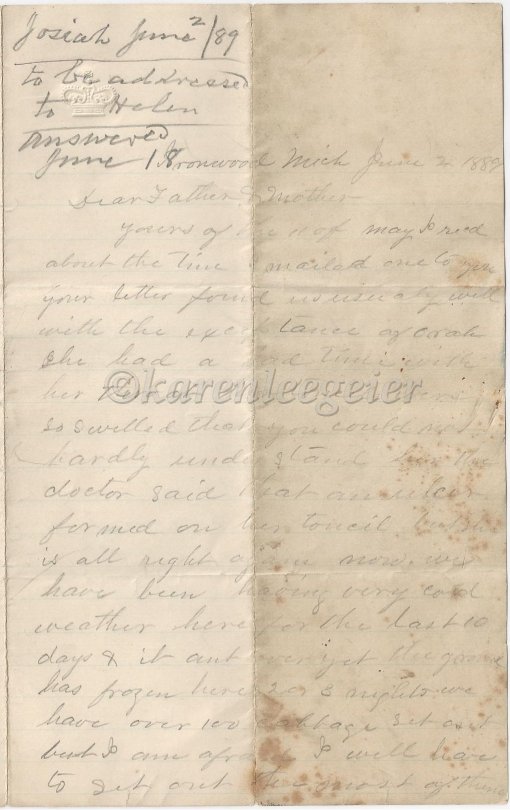 Josiah June 2/89
to be addressed
to Helen
answered
June 18
Ironwood Mich June 2 1889
Dear Father & Mother
yours of the of may I recd
about the time I mailed one to you
your letter found us usualy well
with the exceptance of orah
she had a bad time with
her
so swilled that you could not
hardly understand her the
doctor said that an ulcer
formed on her toncil but she
is all right again now. we
have been having very cold
weather here for the last 10
days & it ant over yet the ground
has frozen here 2 or 3 nights we
have over 100 cabbage set out
but I am afraid I will have
to set out the most of them
©karenleegeier